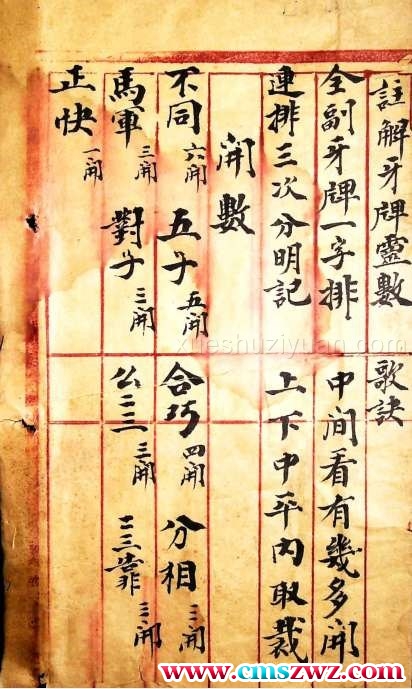 註解牙牌靈數歌訣
全副牙牌一字排 中间看有幾多開
連排三次分明記 上下中平內取裁
開數
不同六開 五子五開 合巧四開 分相三開
馬軍三開 對子三開 么二三三開 二三靠三開
正快一開
xueshuziyuan.com
www.cmszwz.com